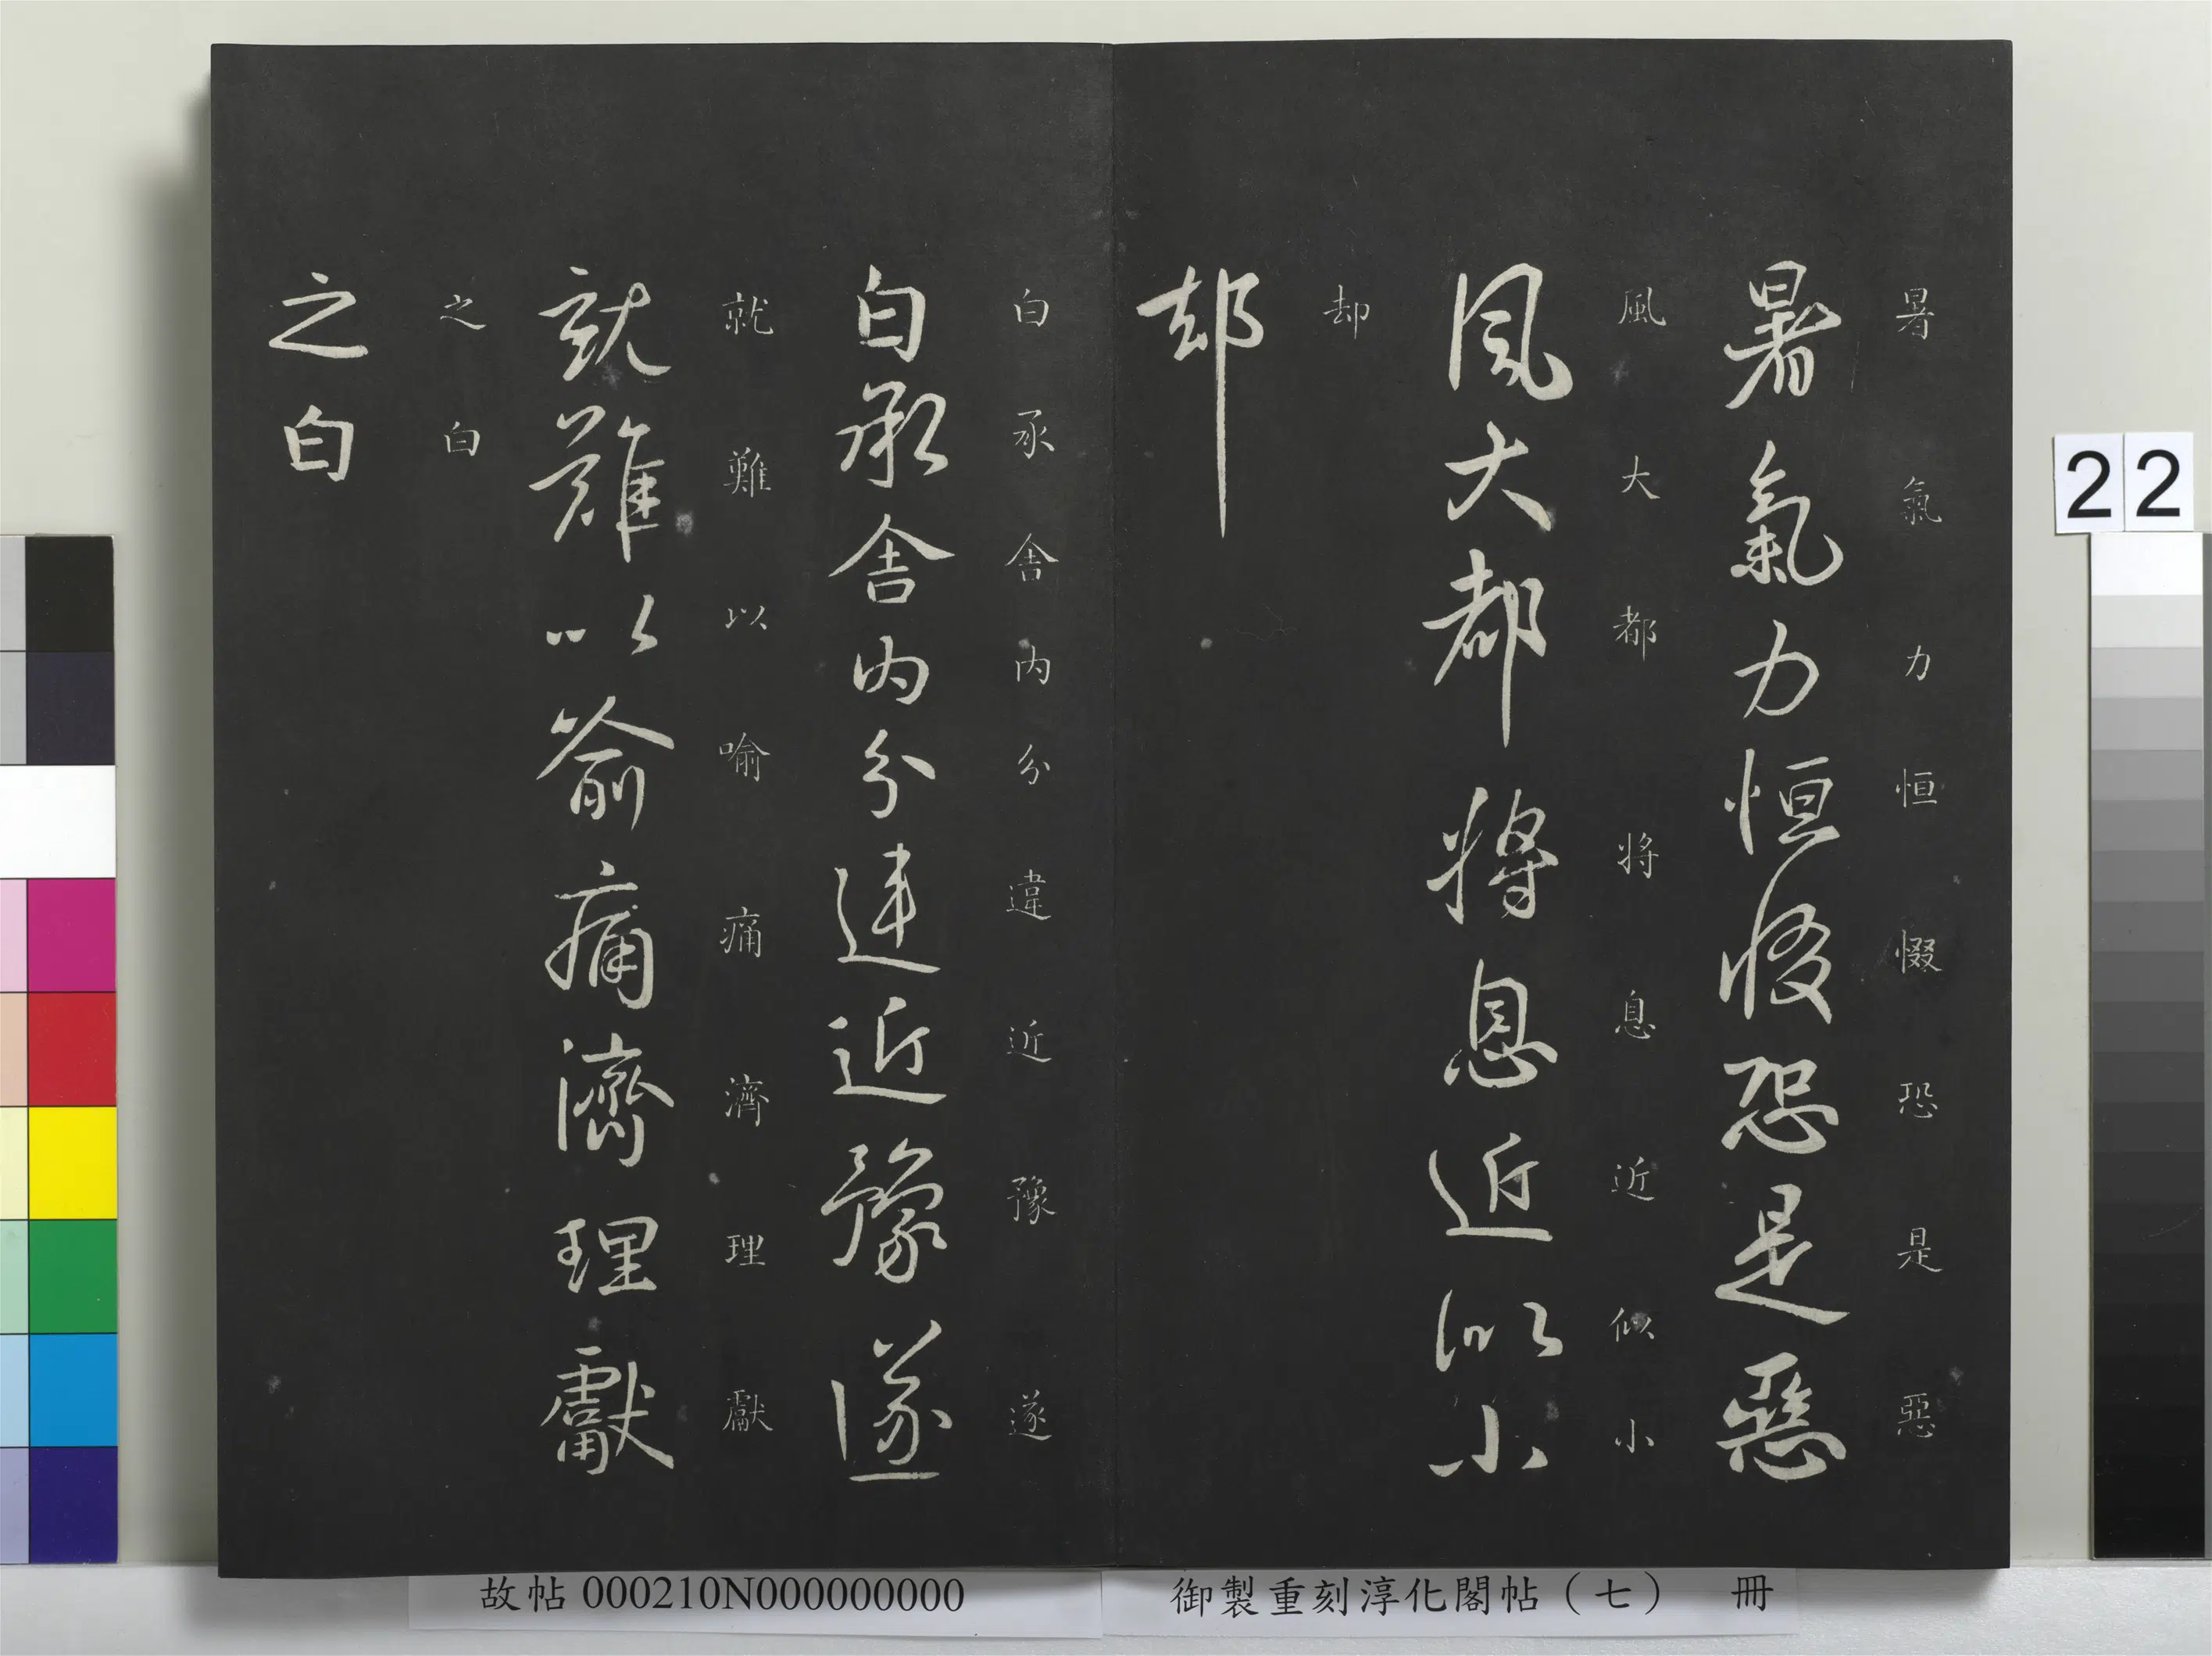 暑氣力恒惙恐是惡
暑氣力恒惙恐是惡
風大都將息近似小
風大都將息近似小
却
却
白承舍內分違近豫遂
白承舍內分違近豫遂
就難以喻痛濟理獻
就難以喻痛濟理獻
之白
之白
22
故帖000210N000000000
御製重刻淳化閣帖（七） 冊